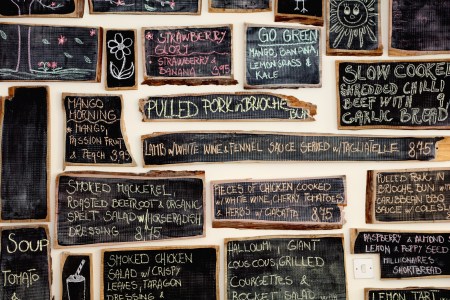 STRAWBERRY
GLORY
STRAWBERRY &
BANANA 3.95
GO GREEN
MANGO, BANANA,
LEMONGRASS &
KALE
SLOW COOKED
SHREDDED CHILLI
BEEF WITH
GARLIC BREAD
MANGO
MORNING
MANGO,
PASSION FRUIT
& PEACH 3.95
PULLED PORK in BRIOCHE
BUN
LAMB w/ WHITE WINE & FENNEL SAUCE SERVED w/ TAGLIATELLE 8,45
SMOKED MACKEREL,
ROASTED BEETROOT & ORGANIC
SPELT SALAD w/ HORSERADISH
DRESSING 8,45
PIECES OF CHICKEN COOKED
w/ WHITE WINE, CHERRY TOMATOES
& HERBS w/ 8,45
PULLED PORK IN
BRIOCHE BUN w/
CARIBBEAN BBQ
SAUCE w/
SOUP
TOMATO
&
SMOKED CHICKEN
SALAD w/ CRISPY
LEAVES,
TARAGON
DRESSING &
HALLOUMI, GIANT
COUS COUS, GRILLED
COURGETTES &
ROCKET SALAD w/
RASPBERRY & ALMOND S
LEMON & POPPY SEED
MILLIONAIRES
SHORTBREAD
LEMON TART